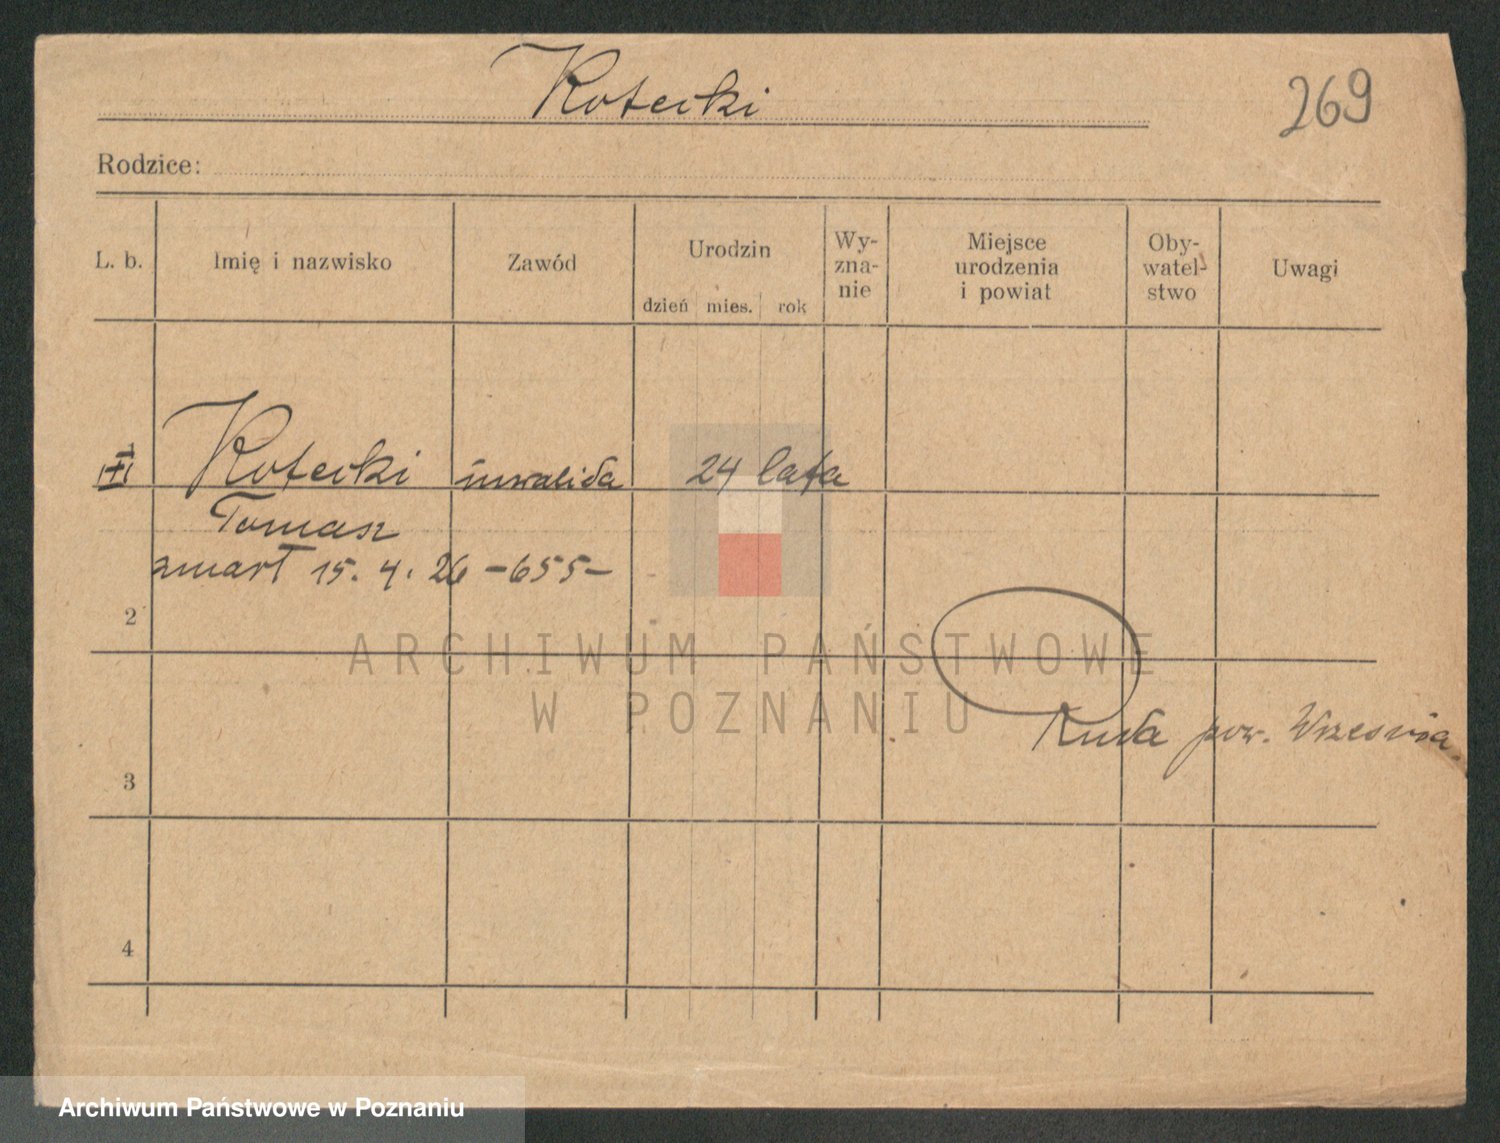 Kotecki
269
Rodzice:
L. b.
Imię i nazwisko
Zawód
Urodzin
dzień mies. rok
Wy-
zna-
nie
Miejsce
urodzenia
i powiat
Oby-
watel-
stwo
Uwagi
1
Kotecki inwalida 24 lata
Tomasz
zmarł 15. 4. 26 –655–
2
ARCHIWUM PAŃSTWOWE
W POZNANIU
Ruda pow. Września
3
4
Archiwum Państwowe w Poznaniu